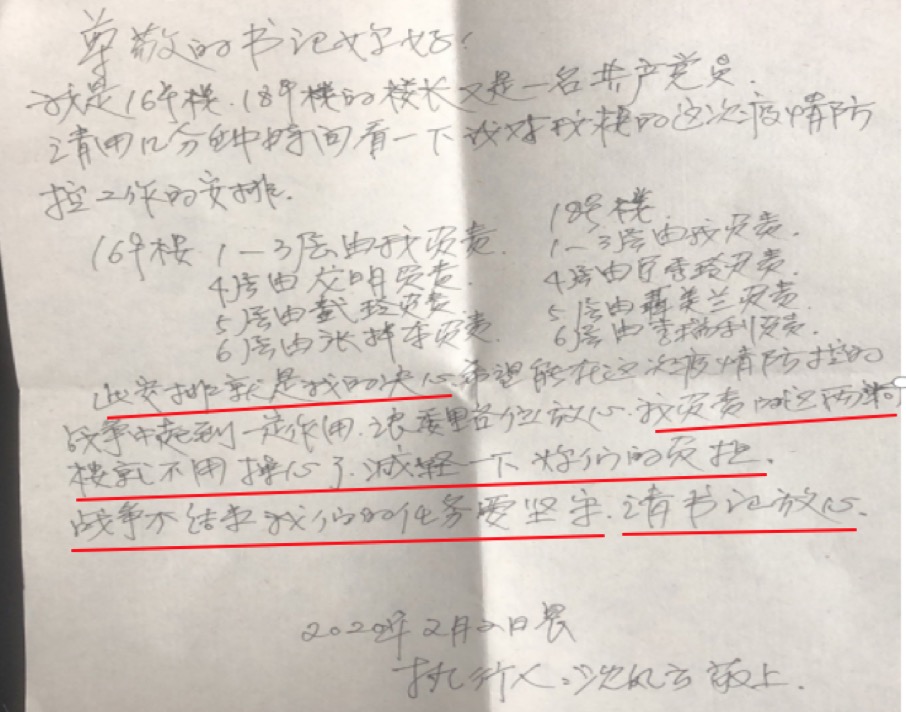 尊敬的书记您好!
我是16号楼.18号楼的楼长又是一名共产党员.
请用几分钟时间看一下我对我楼的这次疫情防
控工作的安排.
16号楼 1—3层由我负责.
4层由龙明负责.
5层由戴玲负责
6层由张 负责
18号楼
1—3层由我负责.
4层由 秀玲负责.
5层由聂美兰负责
6层由李瑞利负责.
此安排就是我的决心.希望能在这次疫情防控的
战争中起到一定作用.请委里各位放心.我负责的这两栋
楼就不用操心了.减轻一下你们的负担.
战争不结束我们的任务要坚守.请书记放心.
2020年2月2日晨
执行人:沈 敬上.